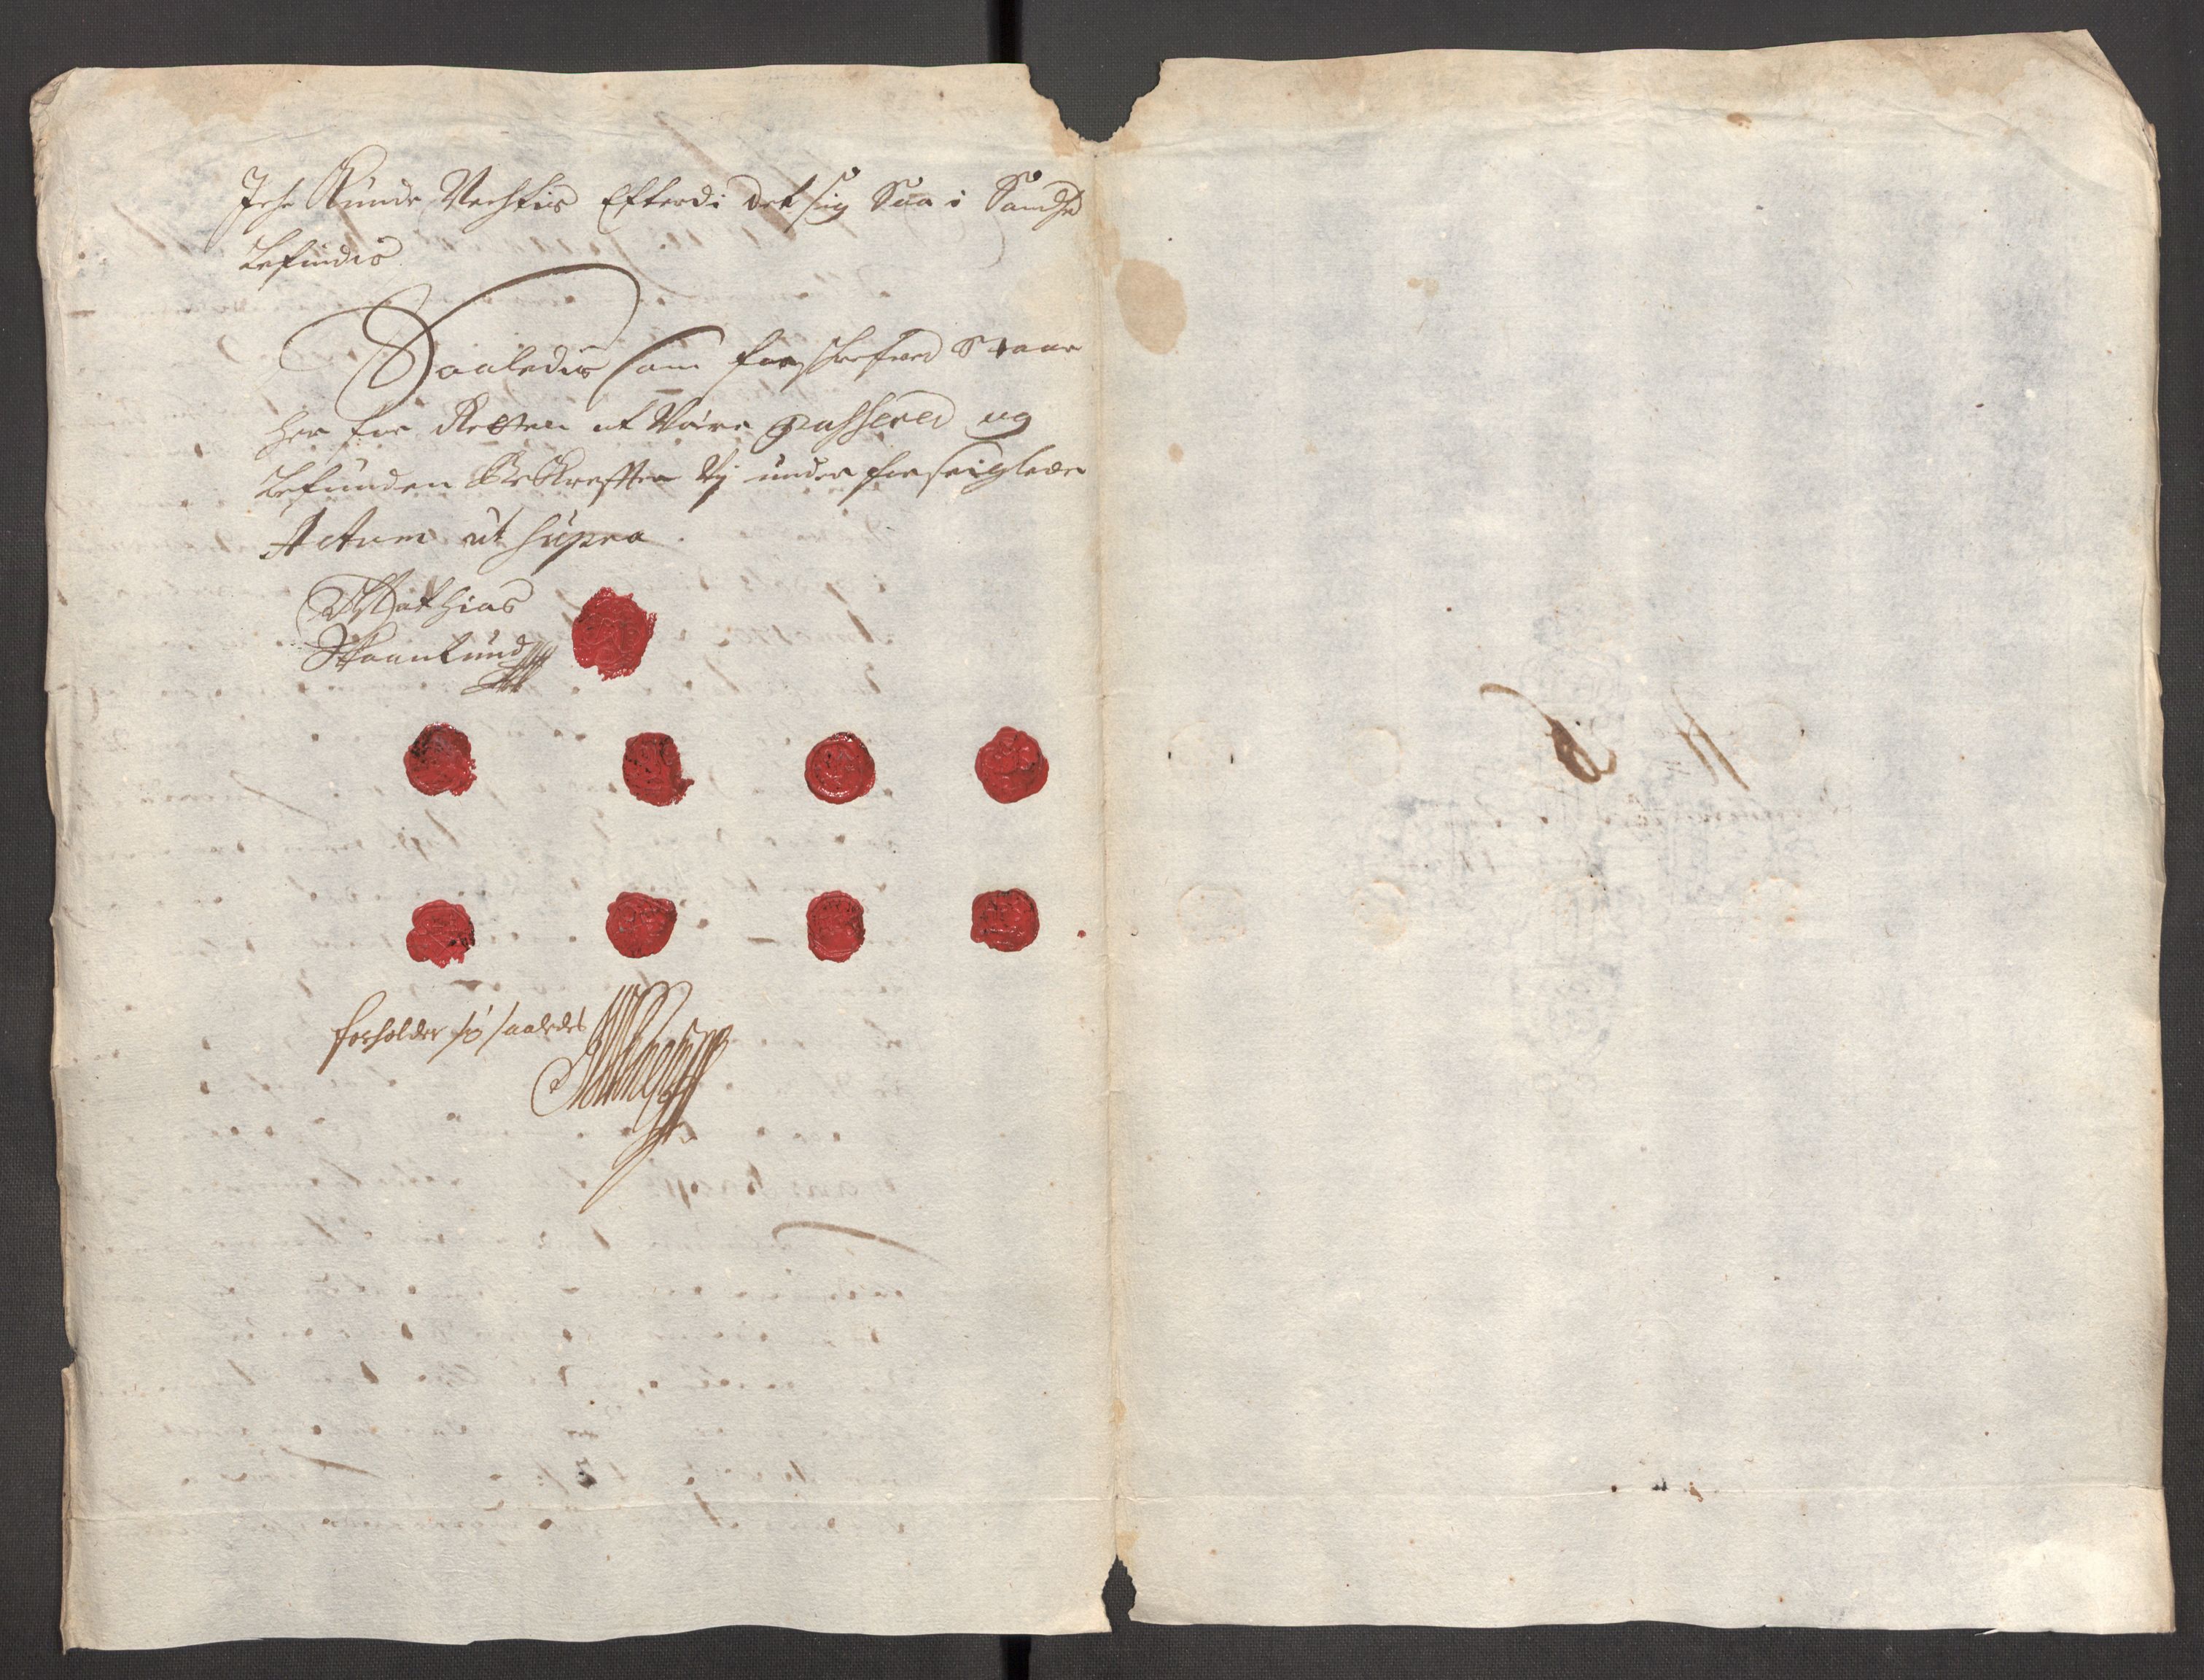 Iche Kunde Nechtis Efterdi det sig Saa i Sandhed
befindis
Saaledis som forschrefved Staar
her for Retten at Være passered og
befunden Bekreffter Vj under forseigleede
Actum ut supra.
Mathias
Skaanlund
forholder sig saaledes